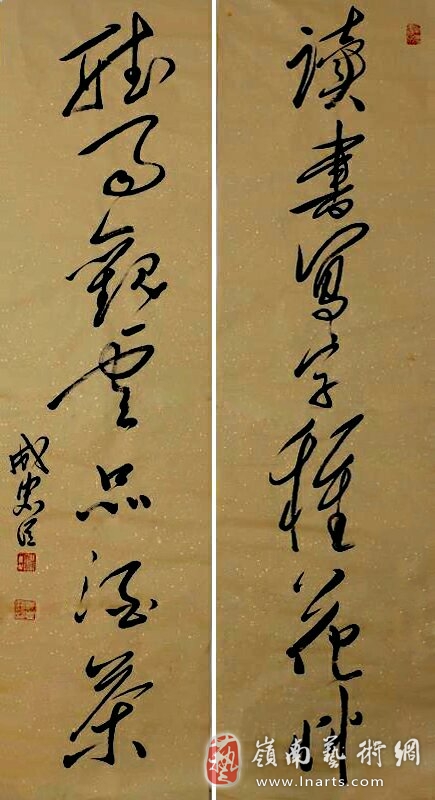 讀書寫字種花
聽雨觀雲品酒茶
嶺南藝術網
www.lnarts.com